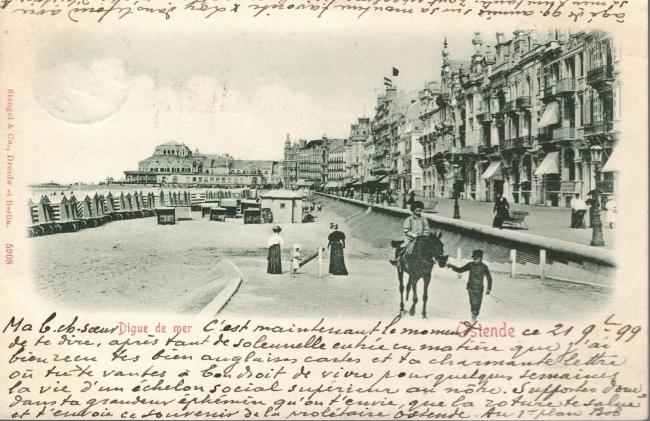 Stengel & Co., Dresde et Berlin. 5908
Digue de mer
Ostende
Ma b. ch. sœur C'est maintenant le moment ce 21 9 99
de te dire, après tant de solennelle entrée en matière que j'ai
bien reçu tes bien anglaises cartes et ta charmante lettre
où tu te vantes à bon droit de vivre pour quelques semaines
la vie d'un échelon social supérieur au nôtre. Supportes donc
dans ta grandeur éphémère qu'on t'envie, que la roture te salue
et t'envoie ce souvenir de la prolétaire Ostende. Au 1er plan Bob